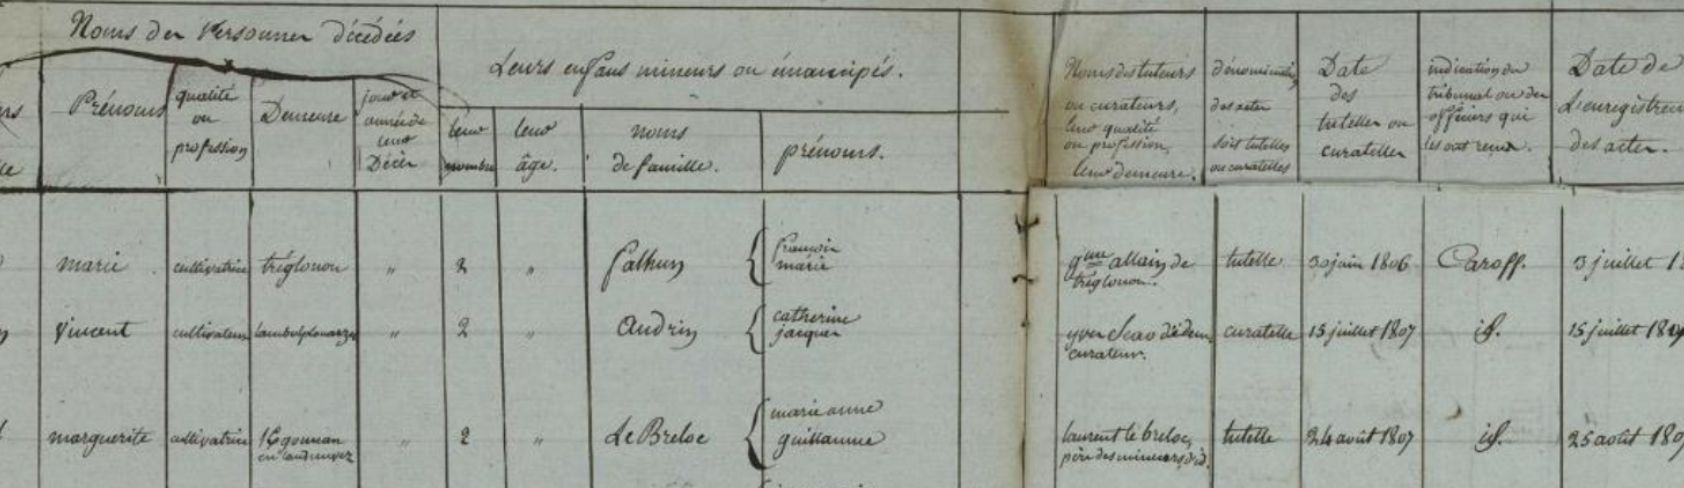 Noms des Personnes décédées
Leurs enfans mineurs ou émancipés.
Prénoms
qualité
ou
profession
Demeure
jour et
année de
leur
Décès
leur
nombre
leur
âge.
noms
de famille.
prénoms.
Noms des tuteurs
ou curateurs,
leur qualité
ou profession,
leur demeure.
des actes
soit tutelles
ou curatelles
Date
des
tutelles ou
curatelles
indication du
tribunal ou des
officiers qui
les ont
Date de
L'enregistrem
des actes.
marie cultivatrice tréglonou " 2 " françois
marie
allain de tutelle 30 juin 1806 Caroff. 3 juillet 18
tréglonou.
Vincent cultivateur 2 " catherine
jacques
yves curatelle 15 juillet 1807 id. 15 juillet 180
curateur.
marguerite cultivatrice " 2 " Le Breloc marie anne
guillaume
laurent le breloc, tutelle 24 août 1807 id. 25 août 180
père des mineurs